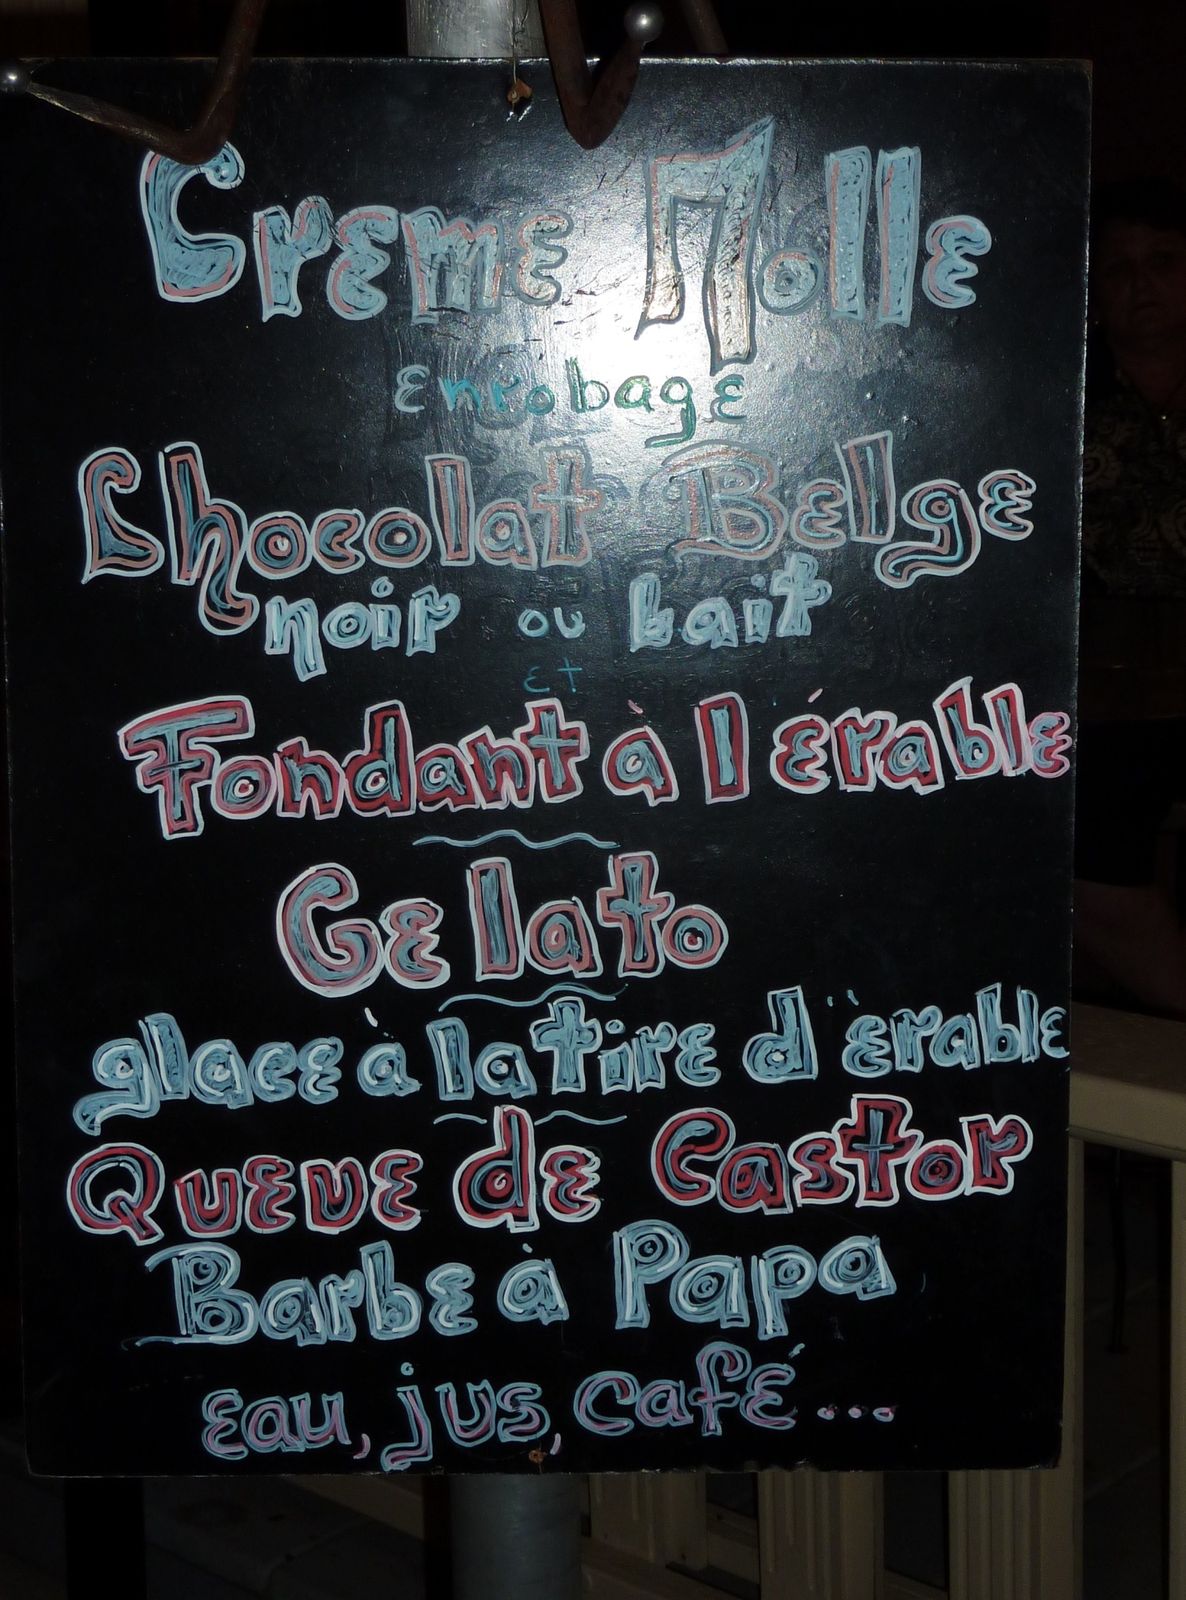 Creme Molle
enrobage
Chocolat Belge
noir ou Lait
et
Fondant à l érable
Gelato
glace à la tire d'érable
Queue de Castor
Barbe à Papa
eau, jus, café...